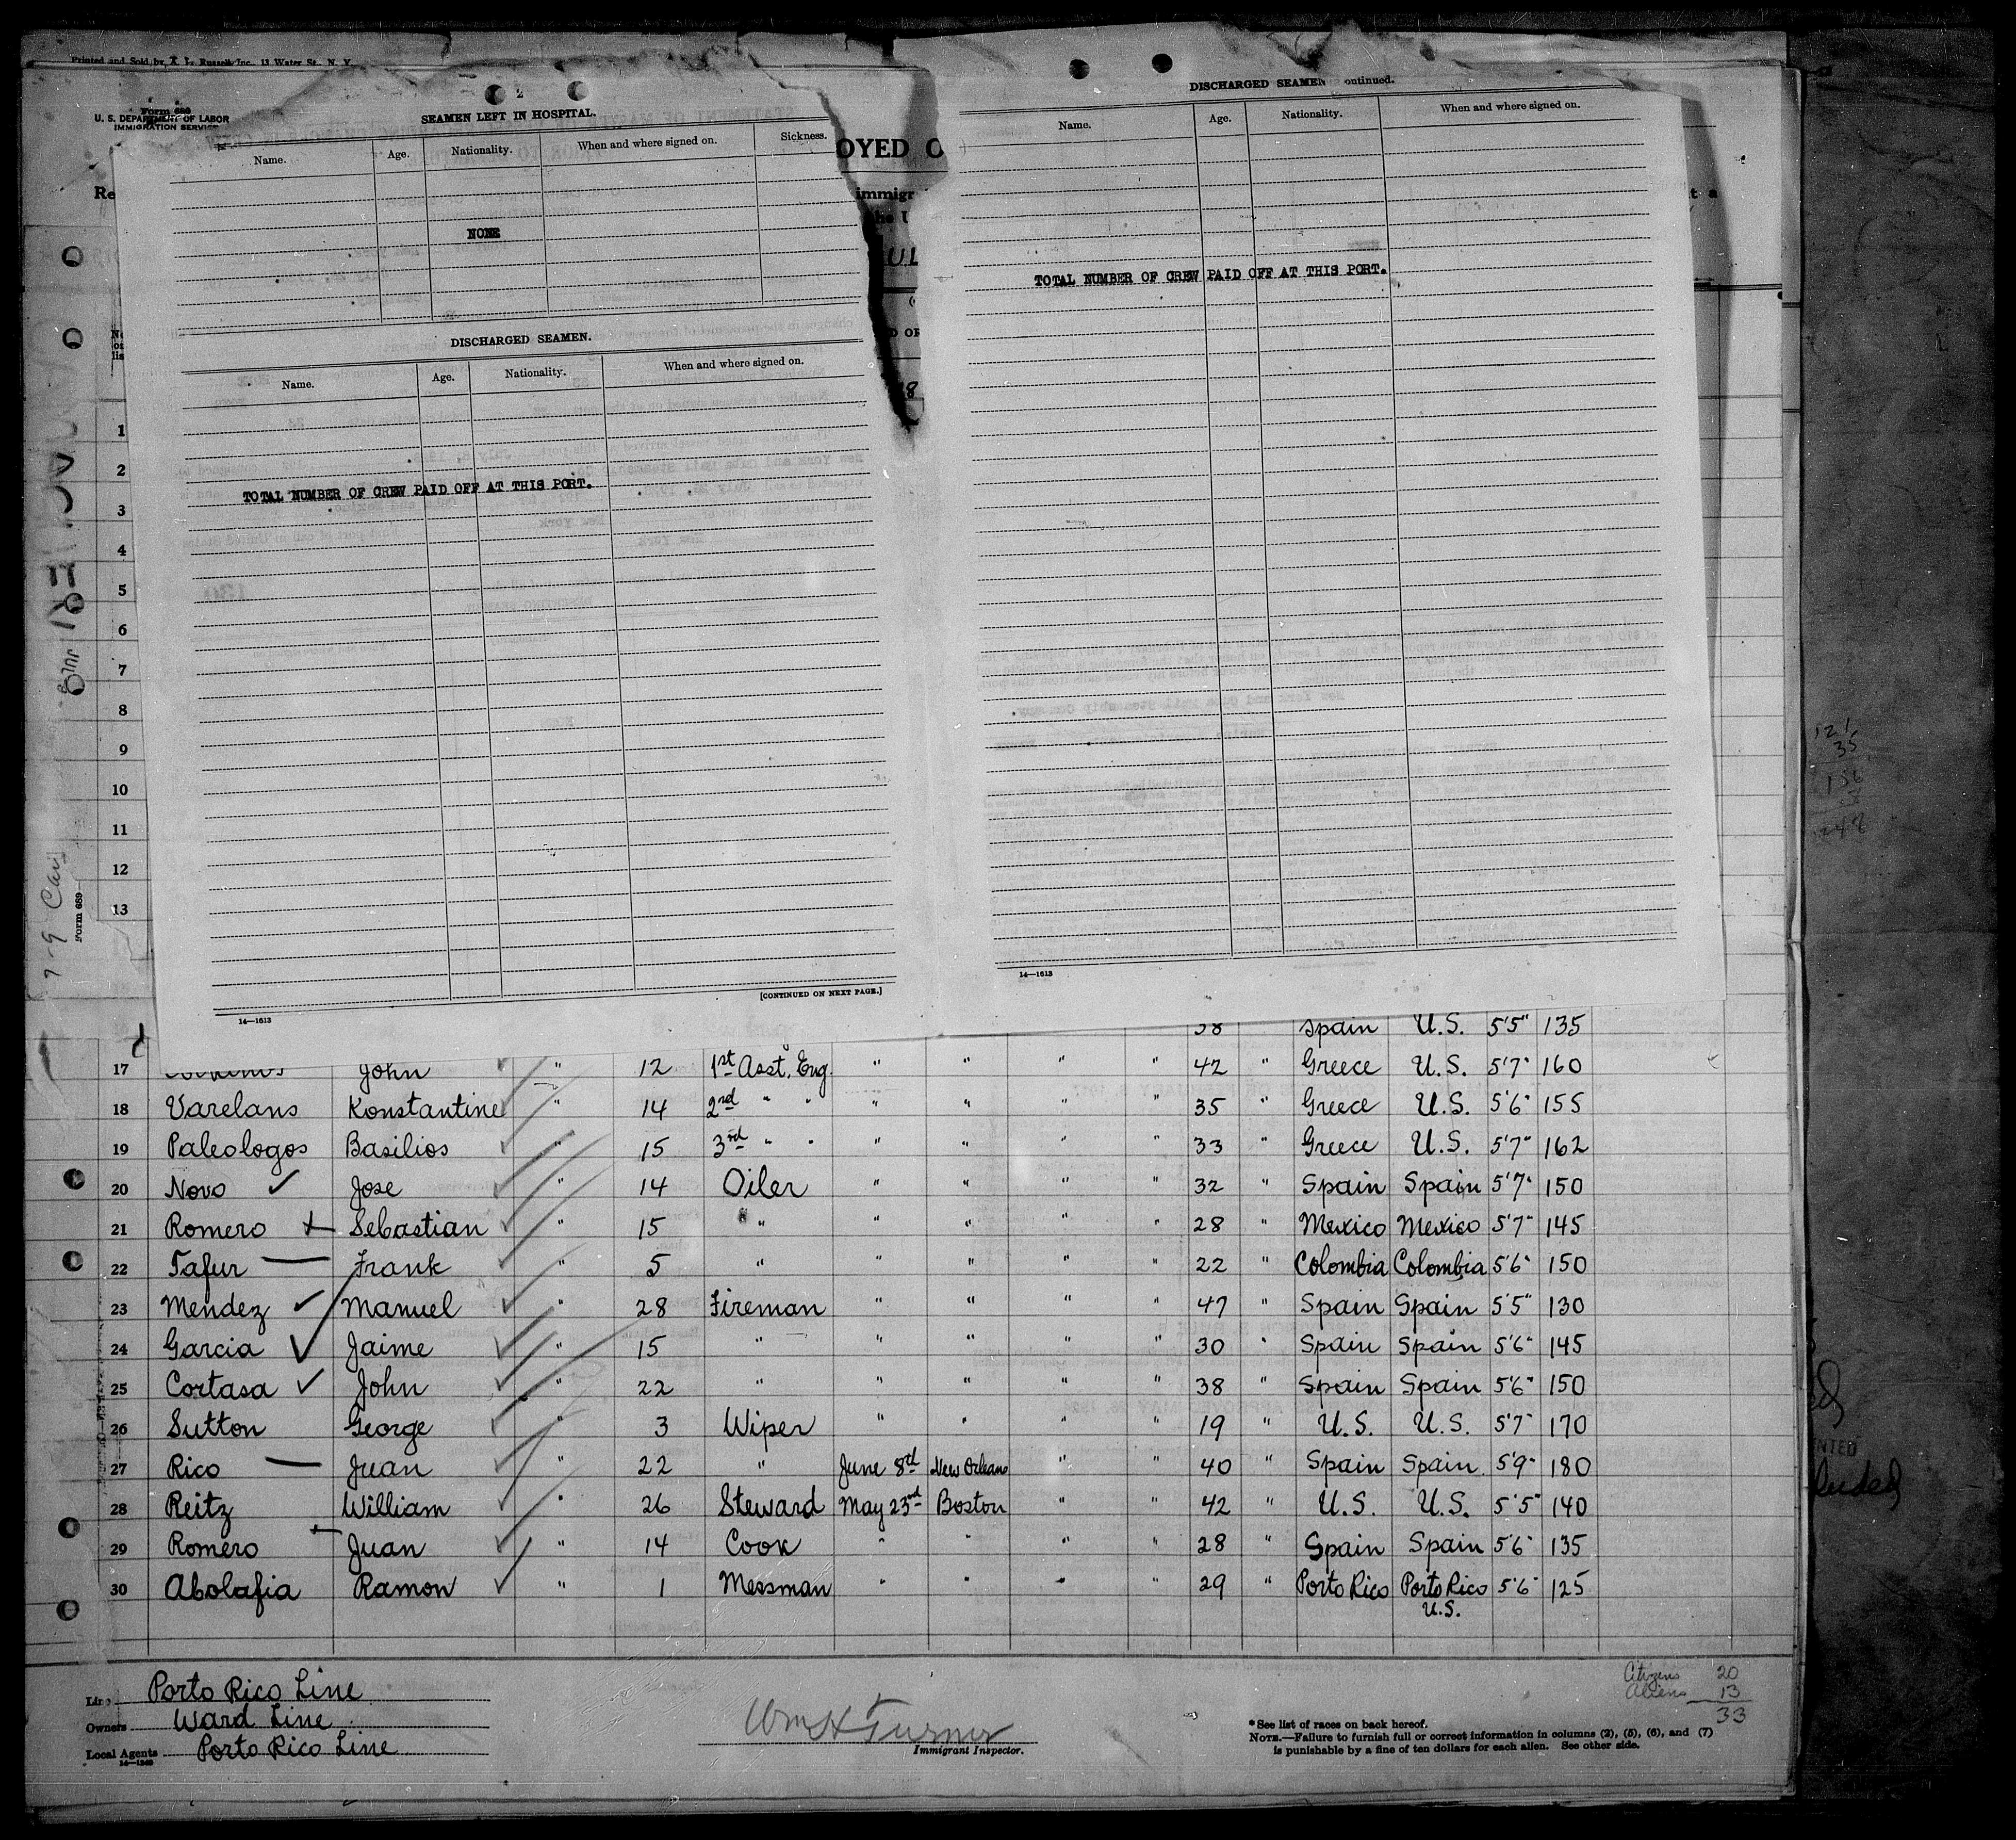 Printed and Sold by A. L. Russell, Inc. 13 Water St., N. Y.
Form 680
U. S. DEPARTMENT OF LABOR
IMMIGRATION SERVICE
2
SEAMEN LEFT IN HOSPITAL.
Name. Age. Nationality. When and where signed on. Sickness.
NONE
DISCHARGED SEAMEN.
Name. Age. Nationality. When and where signed on.
TOTAL NUMBER OF CREW PAID OFF AT THIS PORT.
[CONTINUED ON NEXT PAGE.]
14—1613
OYED O
immigr
DISCHARGED SEAMEN ontinued.
Name. Age. Nationality. When and where signed on.
TOTAL NUMBER OF CREW PAID OFF AT THIS PORT.
14—1613
1
2
3
4
5
6
7
8
9
10
11
12
13
Form 689
38 Spain U.S. 5'5" 135
17 John " 12 1st Asst. Eng. " " " " 42 " Greece U.S. 5'7" 160
18 Varelans Konstantine " 14 2nd " " " " " " 35 " Greece U.S. 5'6" 155
19 Paleologos Basilios " 15 3rd " " " " " " 33 " Greece U.S. 5'7" 162
20 Novo ✓ Jose " 14 Oiler " " " " 32 " Spain Spain 5'7" 150
21 Romero Sebastian " 15 " " " " " 28 " Mexico Mexico 5'7" 145
22 Tafur — Frank " 5 " " " " 22 " Colombia Colombia 5'6" 150
23 Mendez ✓ Manuel " 28 Fireman " " " " 47 " Spain Spain 5'5" 130
24 Garcia ✓ Jaime " 15 " " " " " 30 " Spain Spain 5'6" 145
25 Cortasa ✓ John " 22 " " " " " 38 " Spain Spain 5'6" 150
26 Sutton George " 3 Wiper " " " " 19 " U.S. U.S. 5'7" 170
27 Rico — Juan " 22 " June 8rd New Orleans " " 40 " Spain Spain 5'9" 180
28 Reitz William " 26 Steward May 23rd Boston " " 42 " U.S. U.S. 5'5" 140
29 Romero Juan " 14 Cook " " " " 28 " Spain Spain 5'6" 135
30 Abolafia Ramon " 1 Messman " " " " 29 " Porto Rico Porto Rico 5'6" 125
U.S.
Line Porto Rico Line
Owners Ward Line
Local Agents Porto Rico Line
Wm H Turner
Immigrant Inspector.
Citizens 20
Aliens 13
33
* See list of races on back hereof.
NOTE.—Failure to furnish full or correct information in columns (2), (5), (6), and (7)
is punishable by a fine of ten dollars for each alien. See other side.